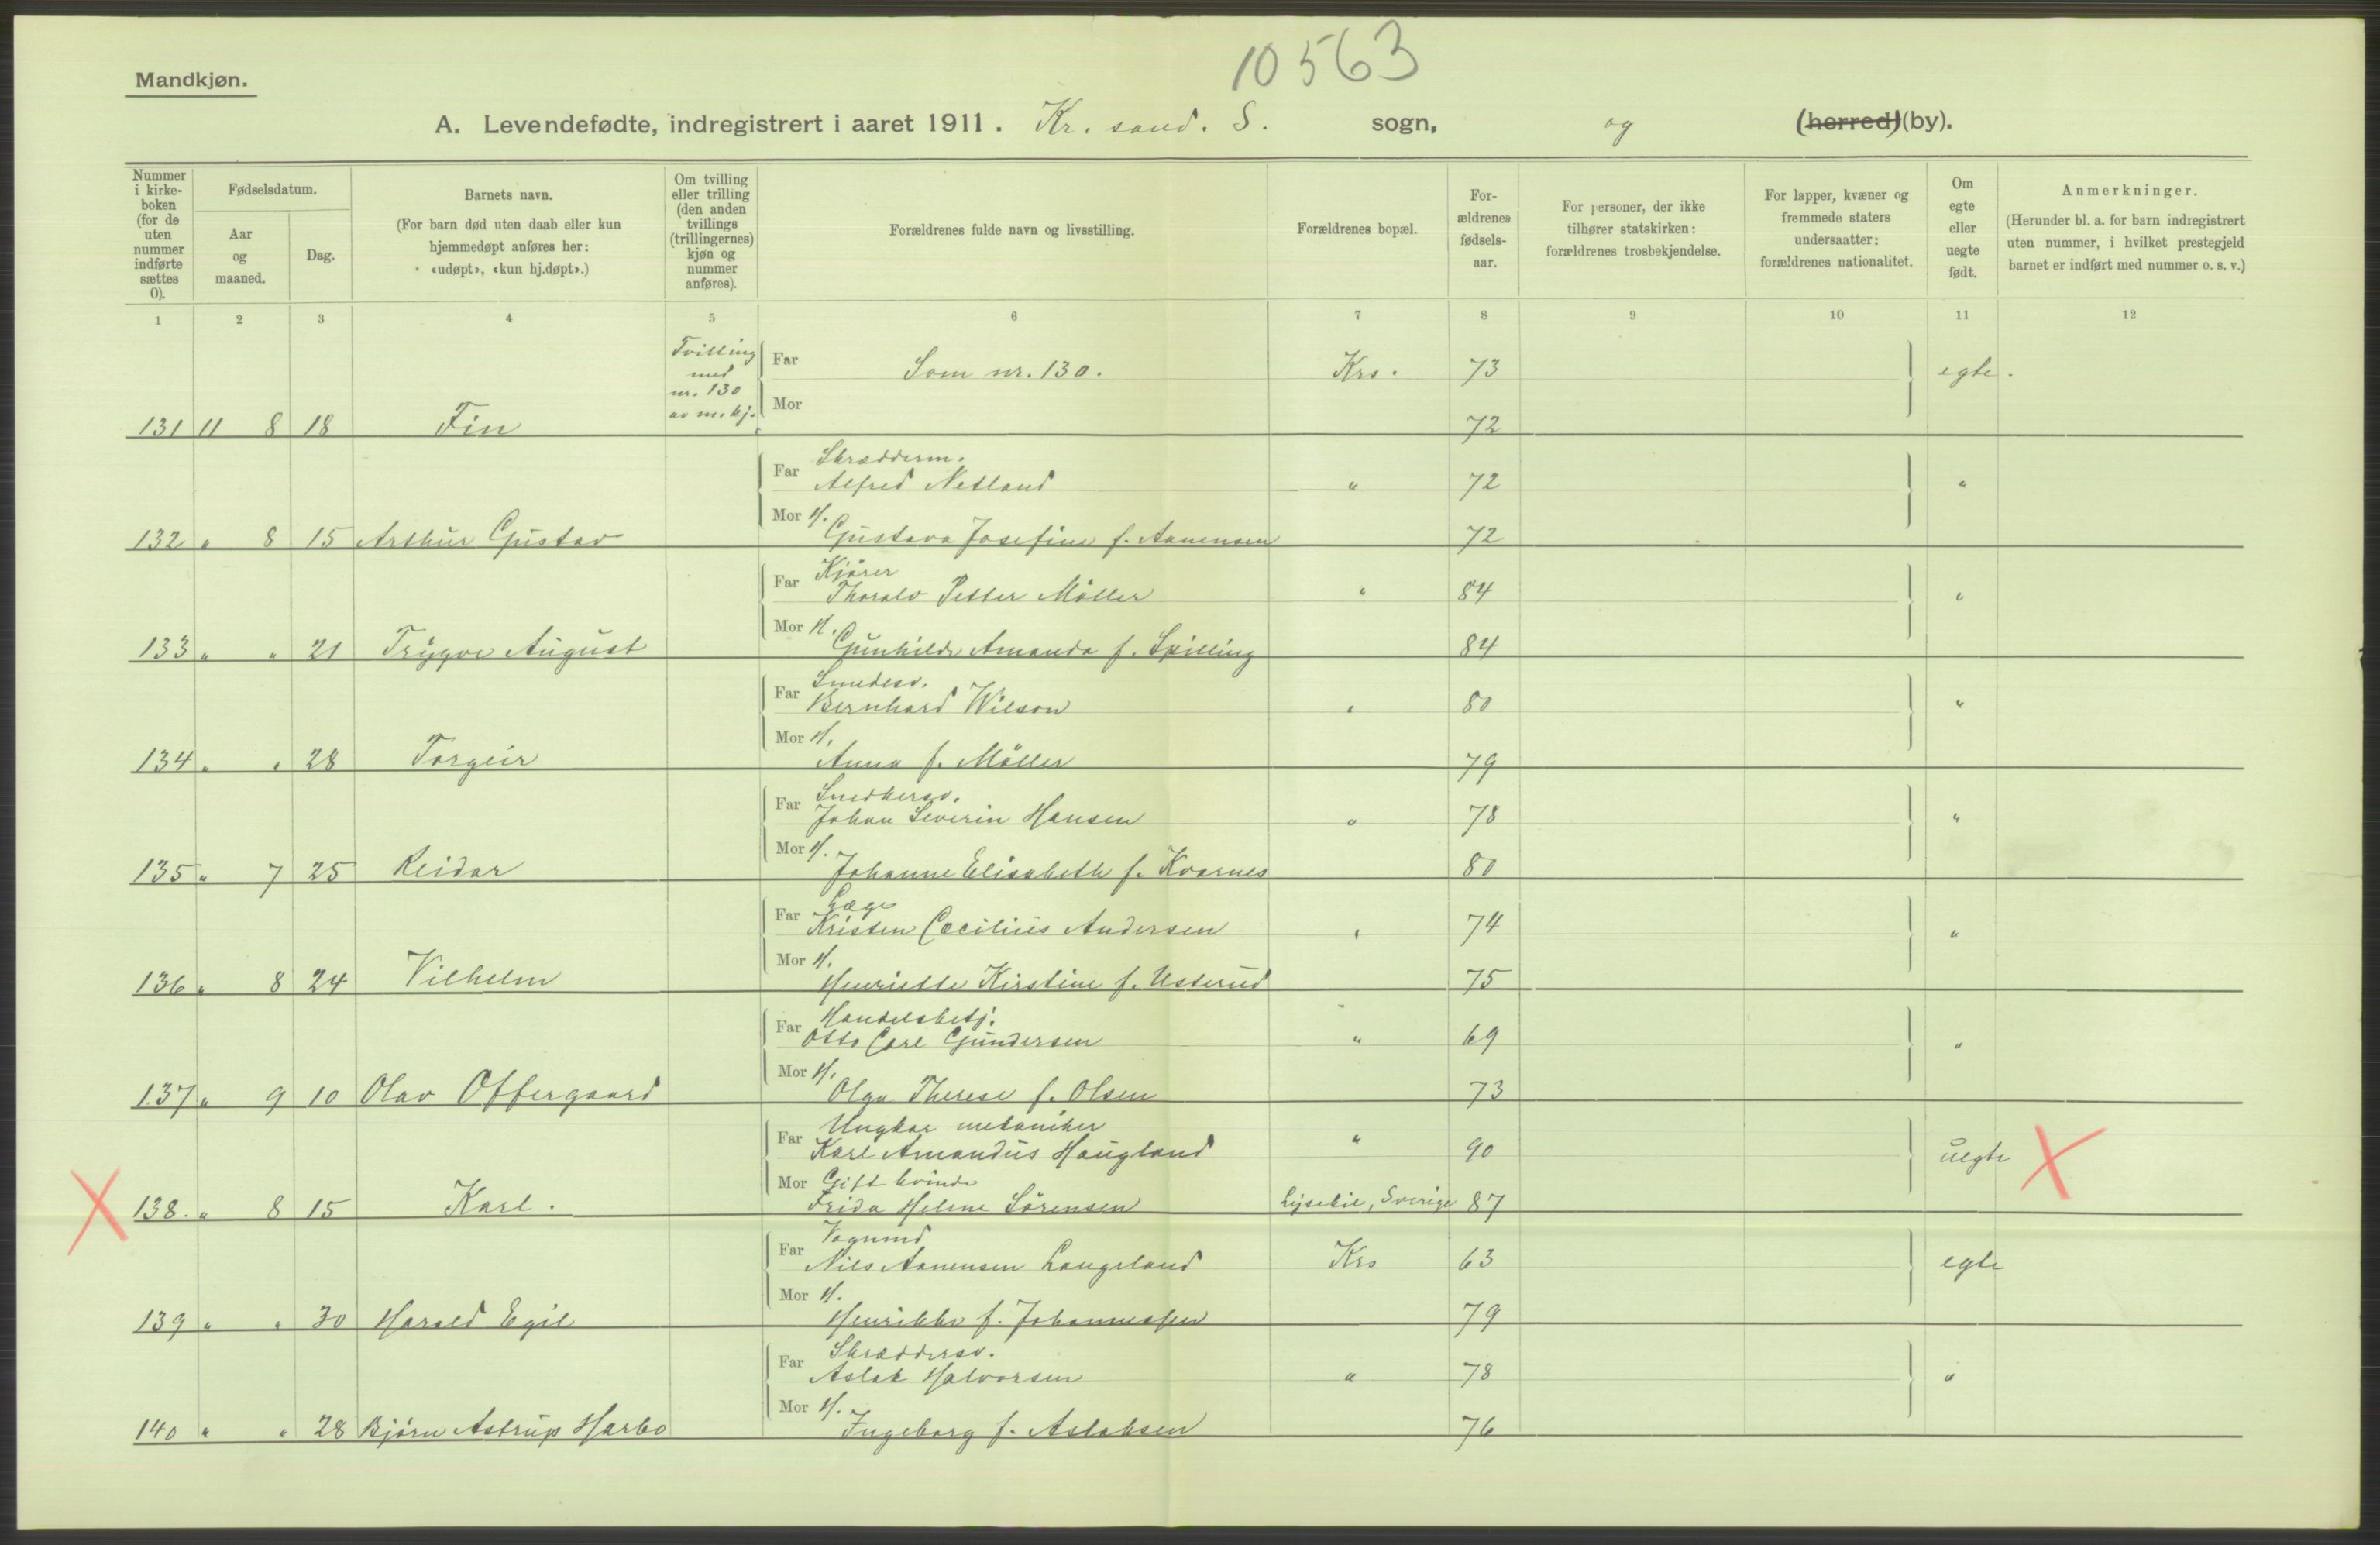 10563
Mandkjøn.
A. Levendefødte, indregistrert i aaret 1911. Kr. sand. S. sogn, og (herred)(by).
Nummer i kirke-boken (for de uten nummer indførte sættes 0).
Fødselsdatum.
Aar og maaned.
Dag.
Barnets navn.
(For barn død uten daab eller kun hjemmedøpt anføres her: «udøpt», «kun hj.døpt».)
Om tvilling eller trilling (den anden tvillings (trillingernes) kjøn og nummer anføres).
Forældrenes fulde navn og livsstilling.
Forældrenes bopæl.
For-ældrenes fødsels-aar.
For personer, der ikke tilhører statskirken: forældrenes trosbekjendelse.
For lapper, kvæner og fremmede staters undersaatter: forældrenes nationalitet.
Om egte eller uegte født.
Anmerkninger.
(Herunder bl. a. for barn indregistrert uten nummer, i hvilket prestegjeld barnet er indført med nummer o. s. v.)
1 2 3 4 5 6 7 8 9 10 11 12
Tvilling med nr. 130 av m.kj.
Far Som nr. 130. Krs. 73 egte.
Mor
131 11 8 18 Fin 72
Skrædderm.
Far Alfred Netland " 72 "
Mor H.
132 " 8 15 Arthur Gustav Gustava Josefine f. Aanensen 72
Kjører
Far Thoralv Petter Möller " 84 "
Mor H.
133 " " 21 Trygve August Gunhilde Amanda f. Spilling 84
Smedesv.
Far Bernhard Wilson " 80 "
Mor H.
134 " " 28 Torgeir Anna f. Möller 79
Snedkersv.
Far Johan Severin Hansen " 78 "
Mor H.
135 " 7 25 Reidar Johanne Elisabeth f. Kvarnes 80
Læge
Far Kristen Cæcilius Andersen " 74 "
Mor H.
136 " 8 24 Vilhelm Henriette Kirstine f. Usterud 75
Handelsbetj.
Far Otto Carl Gundersen " 69 "
Mor H.
137 " 9 10 Olav Offergaard Olga Therese f. Olsen 73
Ungkar mekaniker
Far Karl Amandus Haugland " 90 uegte X
Mor Gift kvinde
X 138. " 8 15 Karl. Frida Helene Sörensen Lysekil, Sverige 87
Vognmd
Far Nils Aanensen Langeland Krs 63 egte
Mor H.
139 " " 30 Harald Egil Henrikke f. Johannessen 79
Skræddersv.
Far Aslak Halvorsen " 78 "
Mor H.
140 " " 28 Bjørn Astrup Harbo Ingeborg f. Aslaksen 76